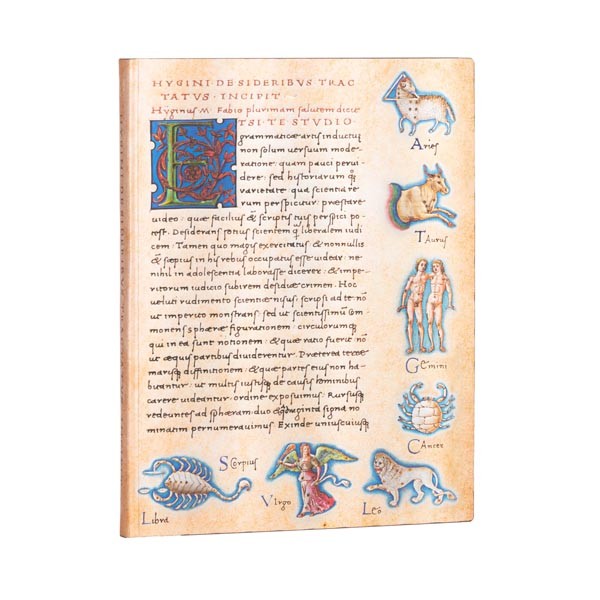 HYGINI DE SIDERIBVS TRAC
TATVS · INCIPIT
Hyginus M. Fabio plurimam salutem dicit
ETSI TE STVDIO
grammaticæ artis inductū
non solum versuum mode-
ratione · quam pauci pervi-
dere · sed historiarum q̨
varietate qua scientia re
rum perspicitur · præstare
uideo · quæ facilius & scriptis tuis perspici po-
test · Desiderans potius scientem q̄ liberalem iudi
cem · Tamen quo magis exercitatus & nonnullis
& sæpius in his rebus occupatus esse uidear · ne
nihil in adolescentia laborasse dicerer · & impe-
ritorum iudicio subirem desidiæ crimen · Hoc
ueluti rudimento scientiæ nisus · scripsi ad te · nō
ut imperito monstrans · sed ut scientissimū com
monens · sphæræ figurationem · circulorumq̨
qui in ea sunt notionem · & quæ ratio fuerit · nō
ut æquis partibus diuiderentur · Præterea terræ
marisq̨ diffinitionem · & quæ partes eius non ha-
buantur · ut multis iustisq̨ de causis hominibus
carere uideantur · ordine exposuimus · Rursusq̨
redeuntes ad sphæram · duo & signa no
minatim pernumerauimus · Exinde uniuscuiusq̨
Aries
Taurus
Gemini
Cancer
Leō
Virgo
Scorpius
Libra